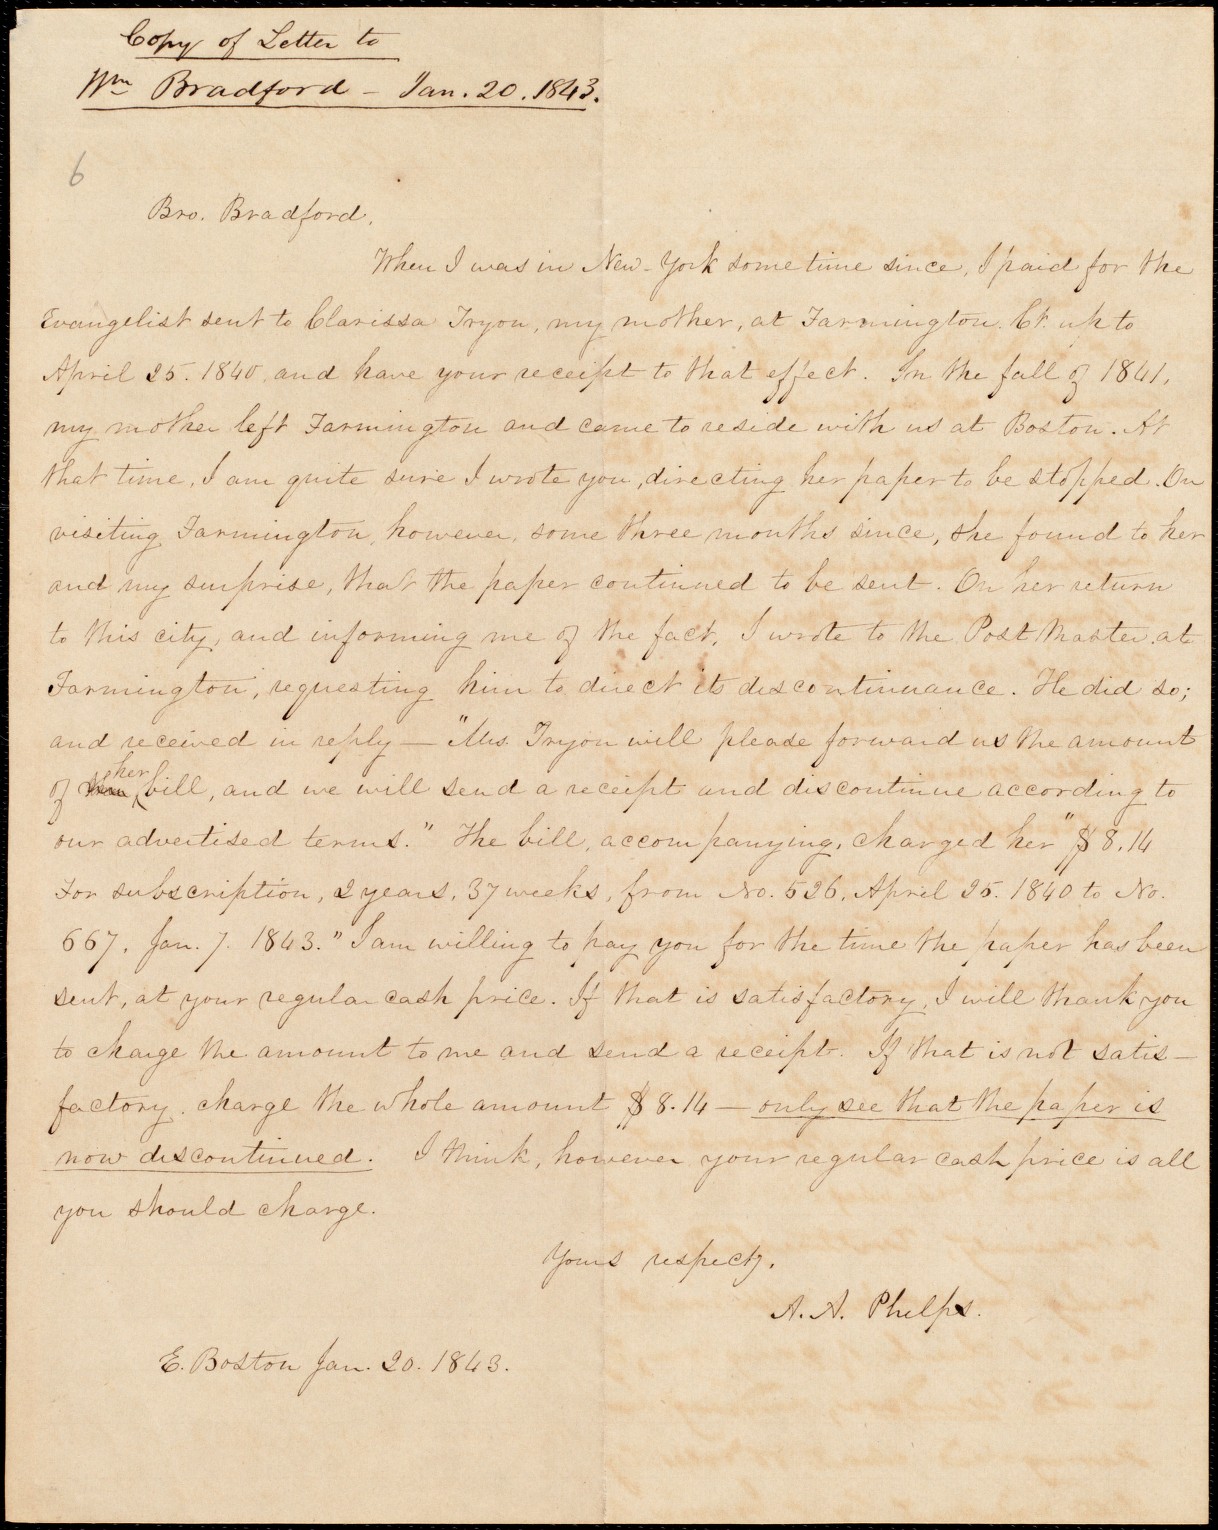 Copy of Letter to
Wm Bradford - Jan. 20. 1843.
6
Bro. Bradford,
When I was in New-York some time since, I paid for the
Evangelist sent to Clarissa Tryon, my mother, at Farmington. Ct. up to
April 25. 1840, and have your receipt to that effect. In the fall of 1841,
my mother left Farmington and came to reside with us at Boston. At
that time, I am quite sure I wrote you, directing her paper to be stopped. On
visiting Farmington, however, some three months since, she found to her
and my surprise, that the paper continued to be sent. On her return
to this city, and informing me of the fact, I wrote to the Post Master at
Farmington, requesting him to direct its discontinuance. He did so;
and received in reply — "Mrs. Tryon will please forward us the amount
of her bill, and we will send a receipt and discontinue according to
our advertised terms." The bill, accompanying, charged her "$8.14
For subscription, 2 years, 37 weeks, from No. 526, April 25. 1840 to No.
667, Jan. 7. 1843." I am willing to pay you for the time the paper has been
sent, at your regular cash price. If that is satisfactory, I will thank you
to charge the amount to me and send a receipt. If that is not satis-
factory, charge the whole amount $8.14 — only see that the paper is
now discontinued. I think, however your regular cash price is all
you should charge.
Yours respecty,
A. A. Phelps.
E. Boston Jan. 20. 1843.